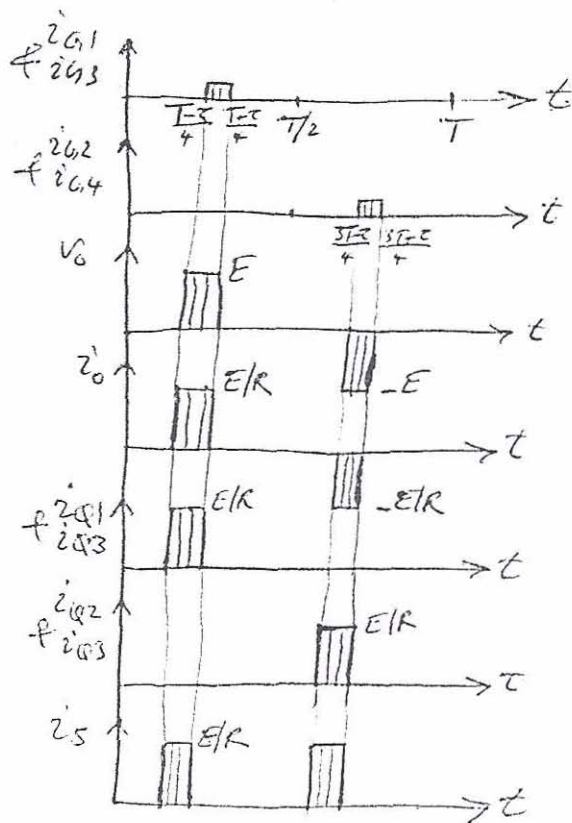 i_G1
& i_G3
t
T-τ/4 T-τ/4 T/2 T
i_G2
& i_G4
t
3T-τ/4 3T-τ/4
v_o
E
t
i_o
E/R
-E
t
i_Q1
& i_Q3
E/R
-E/R
t
i_Q2
& i_Q3
E/R
τ
i_S
E/R
t